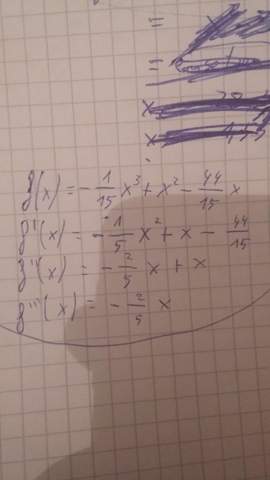 =
=
x
x
f(x) = - 1/15 x³ + x² - 44/15 x
f'(x) = - 1/5 x² + x - 44/15
f''(x) = - 2/5 x + x
f'''(x) = - 2/5 x